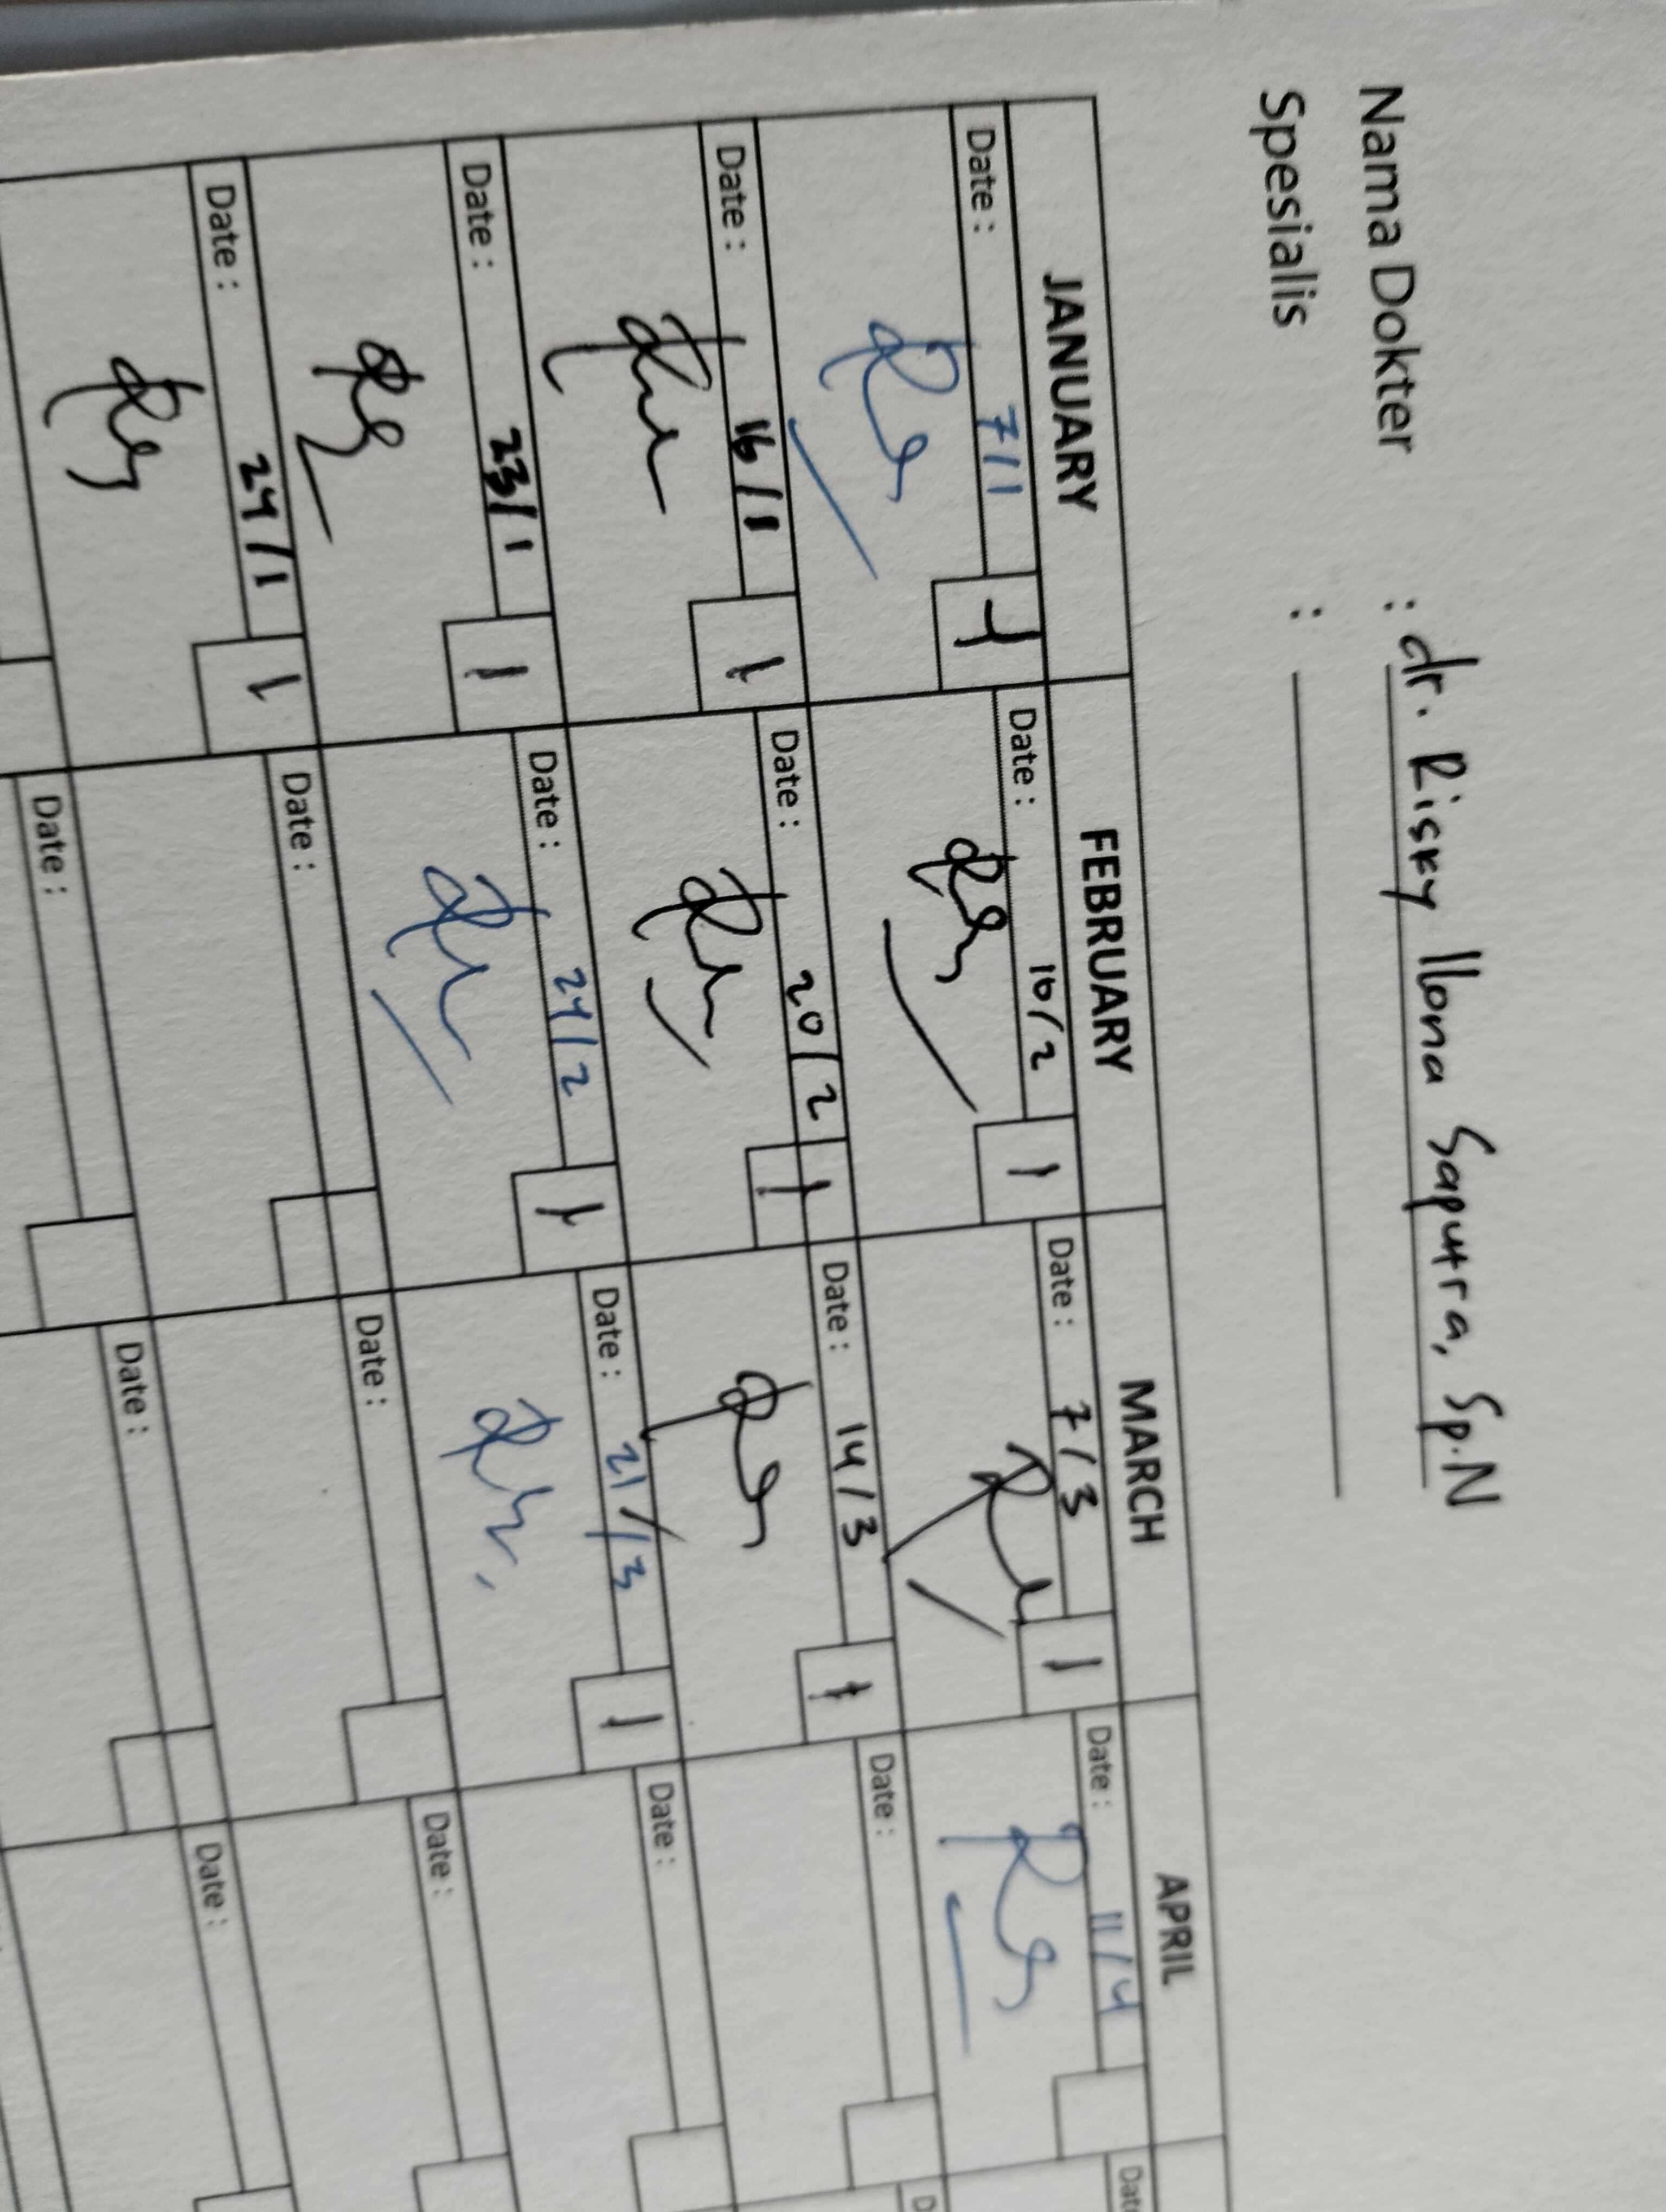 Nama Dokter : dr. Risky Ilona Saputra, Sp.N
Spesialis :
JANUARY FEBRUARY MARCH APRIL
Date : 7/1 1 Date : 16/2 1 Date : 7/3 1 Date : 11/4 Date
Date : 16/1 1 Date : 20/2 1 Date : 14/3 1 Date :
Date : 23/1 1 Date : 24/2 1 Date : 21/3 1 Date :
Date : 24/1 1 Date : Date : Date :
Date : Date : Date :